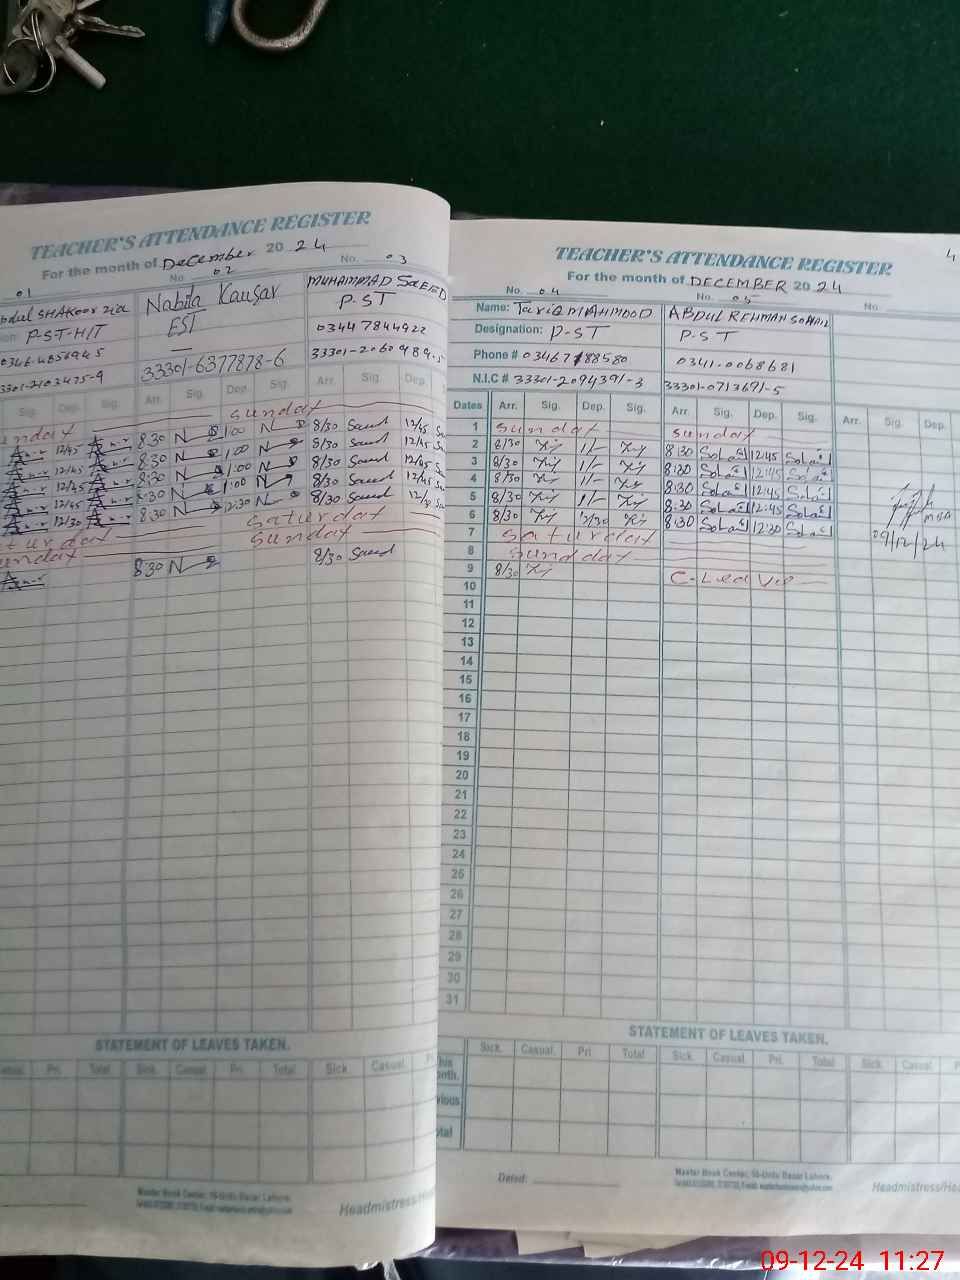 TEACHER'S ATTENDANCE REGISTER
For the month of December 20 24
01
No. 02
No. 03
bdul SHAKoor zia
Nabila Kausar
MUHAMMAD SaEED
P-ST-HIT
EST
P-ST
0346-4856945
03447844922
33301-2103475-9
33301-6377878-6
33301-2060989-5
Sig. Dep. Sig. Arr. Sig. Dep. Sig. Arr. Sig. Dep.
unday sunday
12/45 8:30 N 1:00 N 8/30 Saeed 12/45
12/45 8:30 N 1:00 N 8/30 Saeed 12/45
12/45 8:30 N 1:00 N 8/30 Saeed 12/45
12/45 8:30 N 1:00 N 8/30 Saeed 12/45
12/30 8:30 N 12:30 N 8/30 Saeed
aturday saturday
unday sunday
8:30 N 8/30 Saeed
STATEMENT OF LEAVES TAKEN.
Casual. Pri. Total Sick. Casual. Pri. Total Sick Casual.
Master Book Center, 16-Urdu Bazar Lahore.
Headmistress/
TEACHER'S ATTENDANCE REGISTER
4
For the month of DECEMBER 20 24
No. 04
No. 05
No.
Name: TariQ MAHMOOD
ABDUL REHMAN SOHAIL
Designation: P-ST
P-ST
Phone # 03467188580
0341-0068681
N.I.C # 33301-2094391-3
33301-0713691-5
Dates Arr. Sig. Dep. Sig. Arr. Sig. Dep. Sig. Arr. Sig. Dep.
1 sunday sunday
2 8/30 1/- 8:30 12:45
3 8/30 1/- 8:30 12:45
4 8/30 1/- 8:30 12:45
5 8/30 1/- 8:30 12:45
6 8/30 12/30 8:30 12:30
7 saturday
09/12/24
8 sunday
9 8/30 C-Leave
10
11
12
13
14
15
16
17
18
19
20
21
22
23
24
25
26
27
28
29
30
31
STATEMENT OF LEAVES TAKEN.
Sick. Casual. Pri Total Sick. Casual. Pri. Total Sick. Casual.
Dated:
Master Book Center, 16-Urdu Bazar Lahore.
Headmistress/
09-12-24 11:27